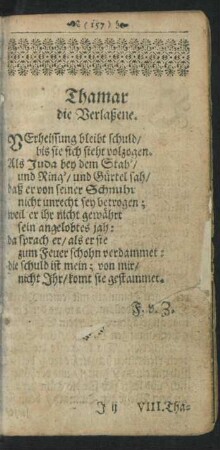 ( 157 )
Thamar
die Verlaßene.
VErheissung bleibt schuld/
bis sie sich sieht volzogen.
Als Juda bey dem Stab'/
und Ring'/ und Gürtel sah/
daß er von seiner Schnuhr
nicht unrecht sey betrogen;
weil er ihr nicht gewährt
sein angelobtes jah:
da sprach er/ als er sie
zum Feuer schohn verdammet:
die schuld ist mein; von mir/
nicht Ihr/ komt sie gestammet.
F. v. Z.
J ij VIII. Tha-